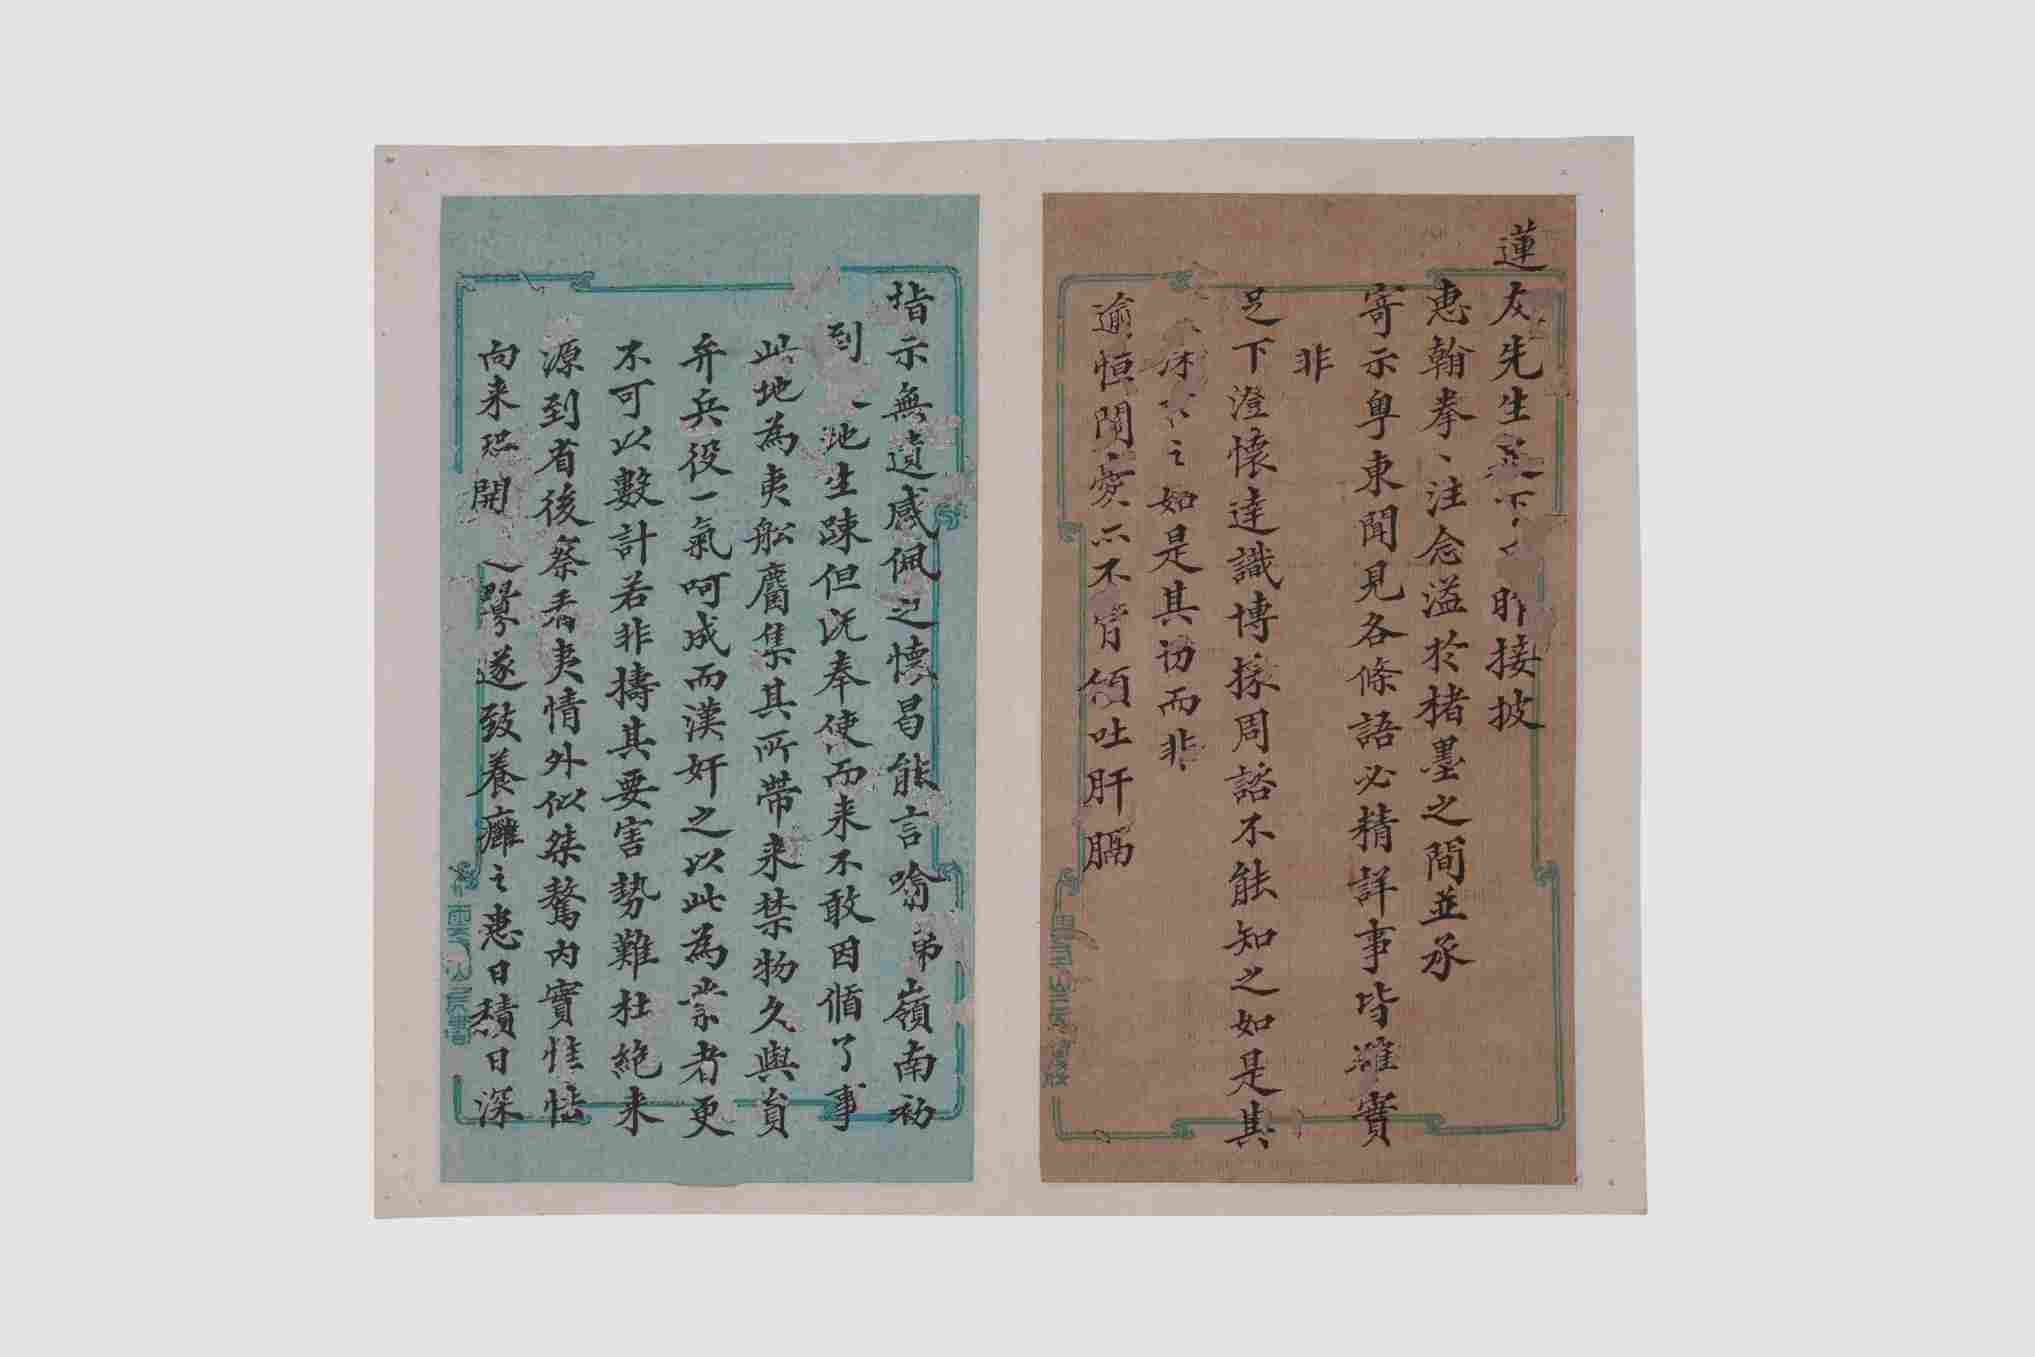 蓮友先生 昨接披
惠翰拳、注念溢於楮墨之間並承
寄示粤東聞見各條語必精詳事皆確實
非
足下澄懷達識博採周諮不能知之如是其
深 之如是其切而非
逾恒關愛亦不肯傾吐肝膈
指示無遺感佩之懷曷能言喻弟嶺南初
到 地生踈但既奉使而来不敢因循了事
此地為夷舩麕集其所帶来禁物久與員
弁兵役一氣呵成而漢奸之以此為業者更
不可以數計若非擣其要害勢難杜絶来
源到省後察看夷情外似桀驁内實恇怯
向来恐開 之釁遂致養癰之患日積日深